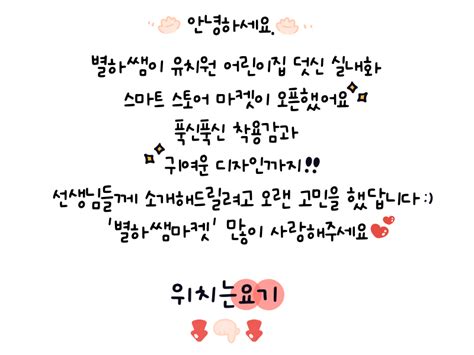 안녕하세요.
별하쌤이 유치원 어린이집 덧신 실내화
스마트 스토어 마켓이 오픈했어요
푹신푹신 착용감과
귀여운 디자인까지!!
선생님들께 소개해드릴려고 오랜 고민을 했답니다 :)
'별하쌤마켓' 많이 사랑해주세요
위치는요기